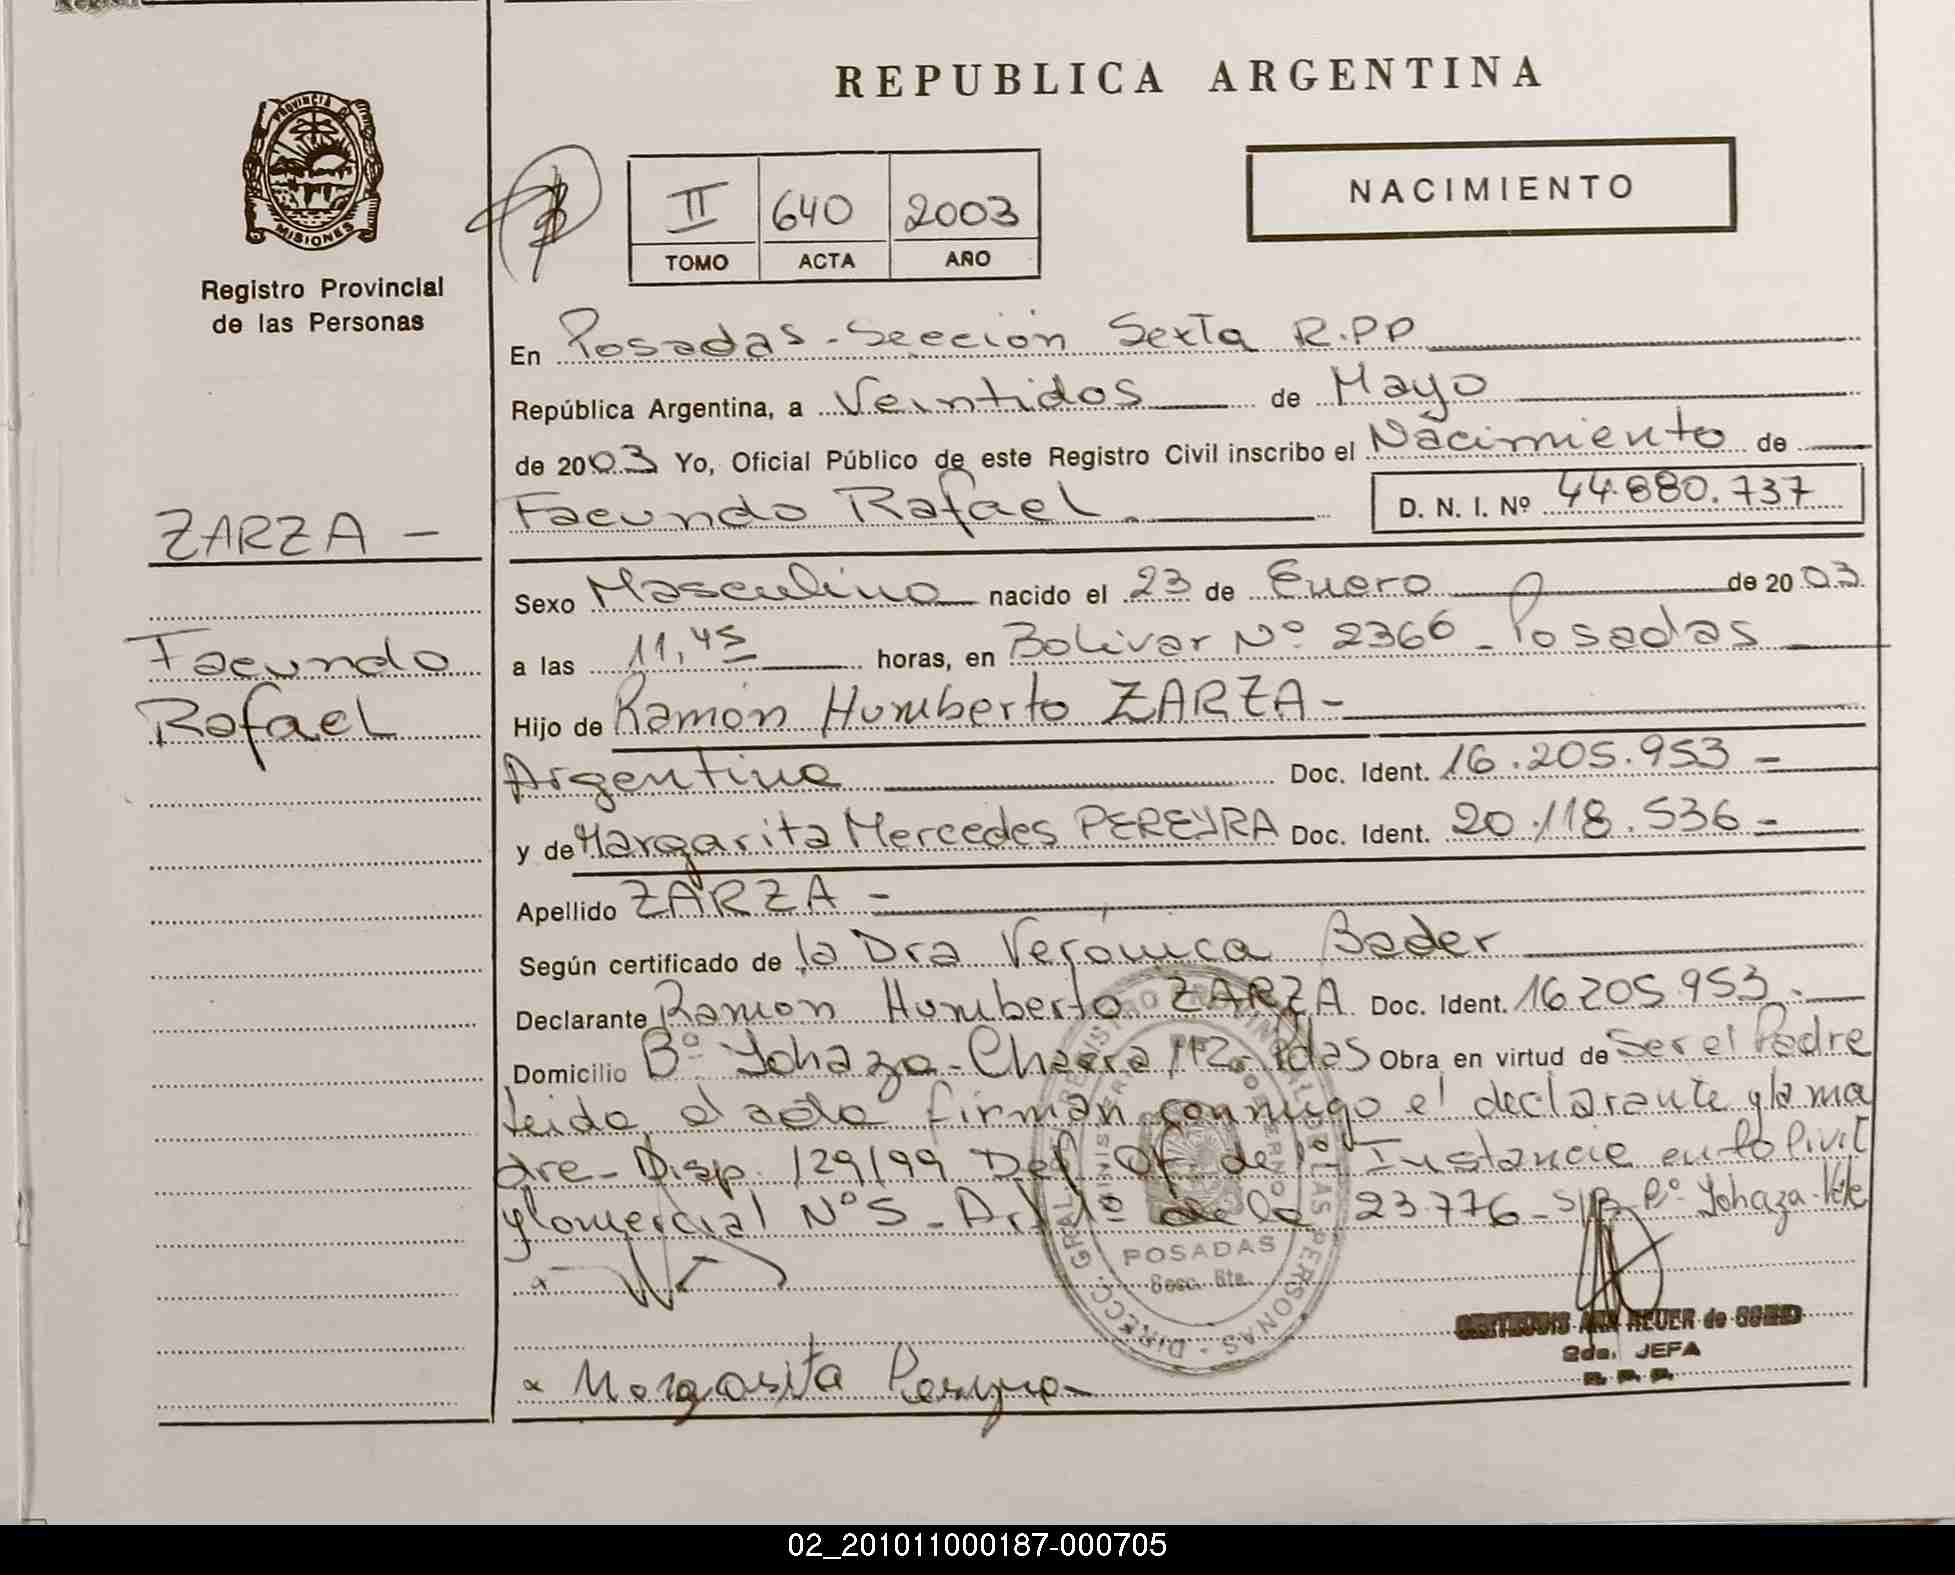 REPUBLICA ARGENTINA
PROVINCIA DE MISIONES
Registro Provincial
de las Personas
II 640 2003
TOMO ACTA AÑO
NACIMIENTO
En Posadas - Sección Sexta R.P.P
República Argentina, a Veintidos de Mayo
de 2003 Yo, Oficial Público de este Registro Civil inscribo el Nacimiento de
Facundo Rafael. D. N. I. Nº 44.880.737
ZARZA -
Facundo
Rafael
Sexo Masculino nacido el 23 de Enero de 2003
a las 11,45 horas, en Bolivar Nº 2366 - Posadas
Hijo de Ramón Humberto ZARZA -
Argentina Doc. Ident. 16.205.953 -
y de Margarita Mercedes PEREYRA Doc. Ident. 20.118.536 -
Apellido ZARZA -
Según certificado de la Dra Verónica Bader
Declarante Ramon Humberto ZARZA Doc. Ident. 16205953.
Domicilio Bº Yohaza - Chacra 112. Pdas Obra en virtud de Ser el Padre
leido el acta firman conmigo el declarante y la ma
dre - Disp. 129/99 Def. Of. de 1º Instancia en lo Civil
y Comercial Nº 5 - Art 1º de la 23.776 - S/R Bº Yohaza
POSADAS
Secc. 6ta.
DIRECC. GRAL. DEL REGISTRO PROVINCIAL DE LAS PERSONAS
MINISTERIO DE GOBIERNO
REUER de
2da. JEFA
R. P. P.
x Margarita Pereyra
02_201011000187-000705